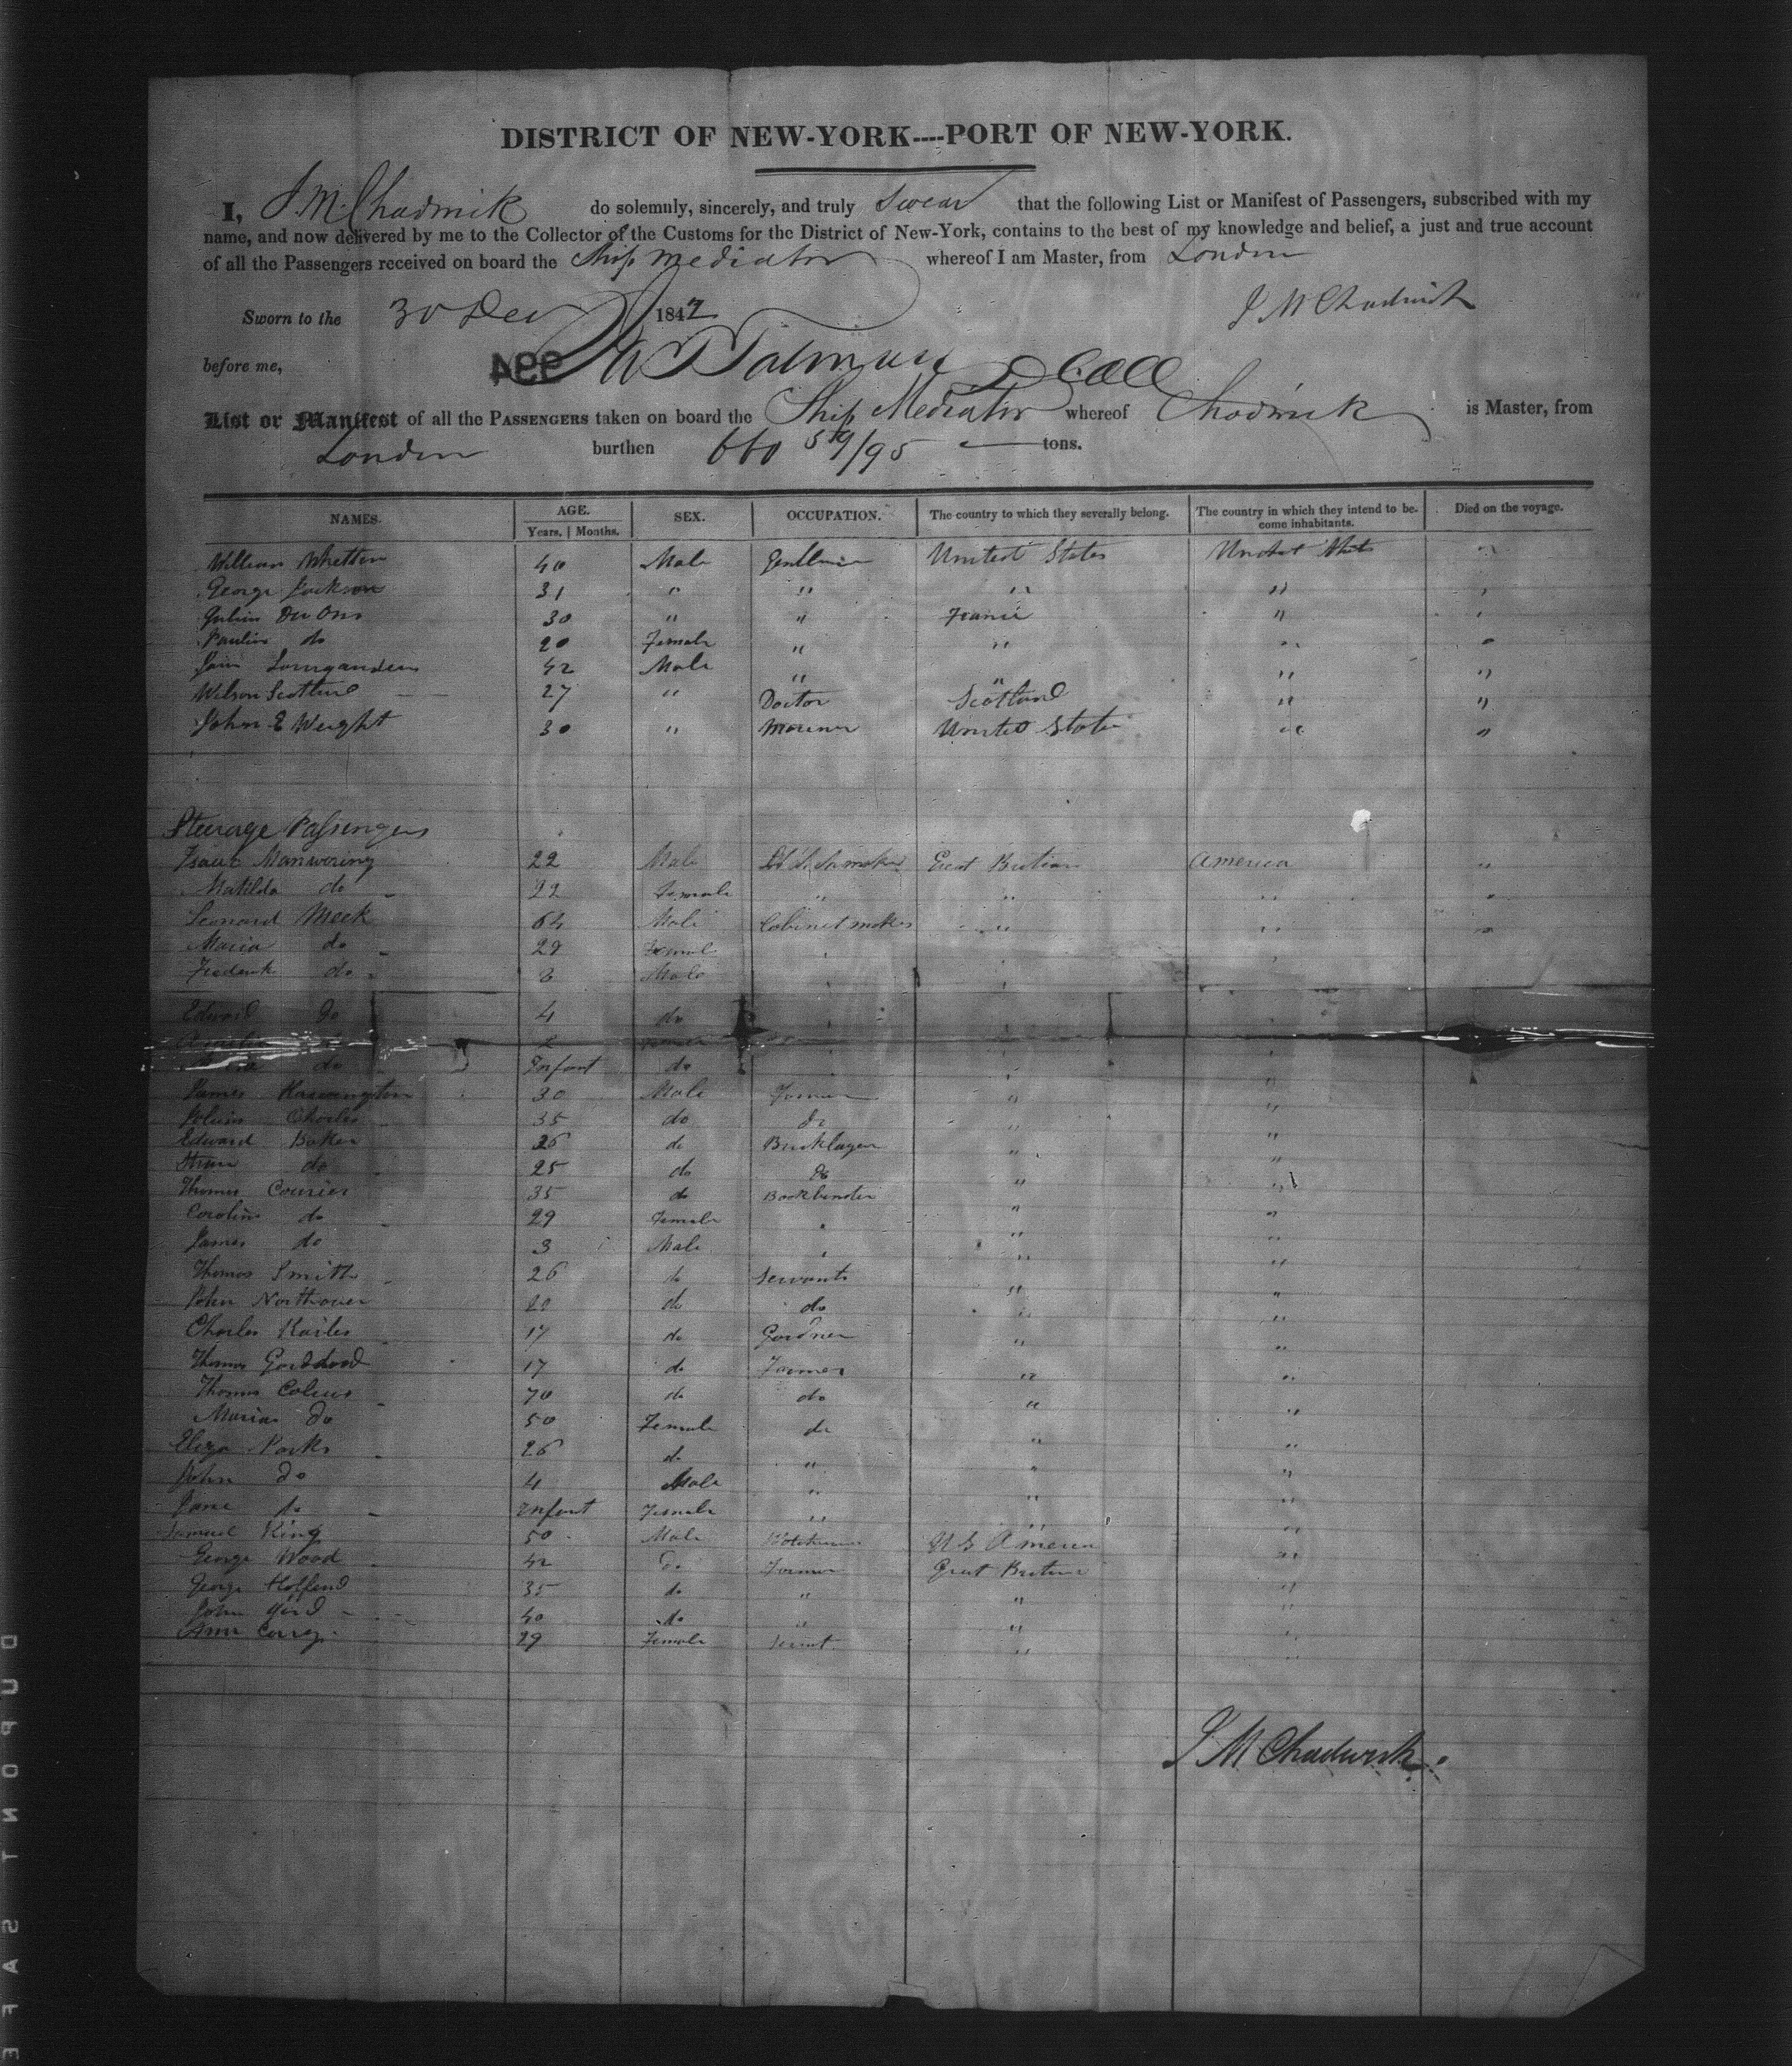 DISTRICT OF NEW-YORK----PORT OF NEW-YORK.
I, J. M. Chadwick do solemnly, sincerely, and truly Swear that the following List or Manifest of Passengers, subscribed with my
name, and now delivered by me to the Collector of the Customs for the District of New-York, contains to the best of my knowledge and belief, a just and true account
of all the Passengers received on board the Ship Mediator whereof I am Master, from London
J M Chadwick
Sworn to the 30 Dec 1842
before me,
994
List or Manifest of all the PASSENGERS taken on board the Ship Mediator whereof Chadwick is Master, from
London burthen 660 59/95 tons.
NAMES. AGE. SEX. OCCUPATION. The country to which they severally belong. The country in which they intend to be- Died on the voyage.
Years, | Months. come inhabitants.
William Whetten 40 Male Gentleman United States United States "
George Jackson 31 " " " " "
30 " " France " "
Pauline do 20 Female " " " "
42 Male " " " "
Wilson 27 " Doctor Scotland " "
John E Weight 30 " Mariner United States " "
Steerage Passengers
Isaac Manwering 22 Male Great Britian America "
Matilda do 22 Female " " " "
Leonard Meek 64 Male Cabinet maker " " "
Maria do 29 Female
Frederick do Male
Edward do 4 do
do Infant do
James Harrington 30 Male Farmer " "
Charles 35 do do " "
Edward Baker 26 do Bricklayer " "
do 25 do do " "
Thomas Courier 35 do Bookbinder " "
Caroline do 29 Female " "
James do 3 Male " "
Thomas Smith 26 do Servants " "
John Northover do do " "
Charles 17 do Gardner " "
Thomas Goddard 17 do Farmer " "
Thomas 70 do do " "
Maria do 50 Female do " "
Eliza Parks 26 do " " "
John do 4 Male " " "
Jane do Infant Female " " "
Samuel King 50 Male U S America "
George Wood 42 do Farmer Great Britain "
George 35 do " " "
John 40 do " " "
Ann 29 Female " "
J M Chadwick
DUPONT SAFE